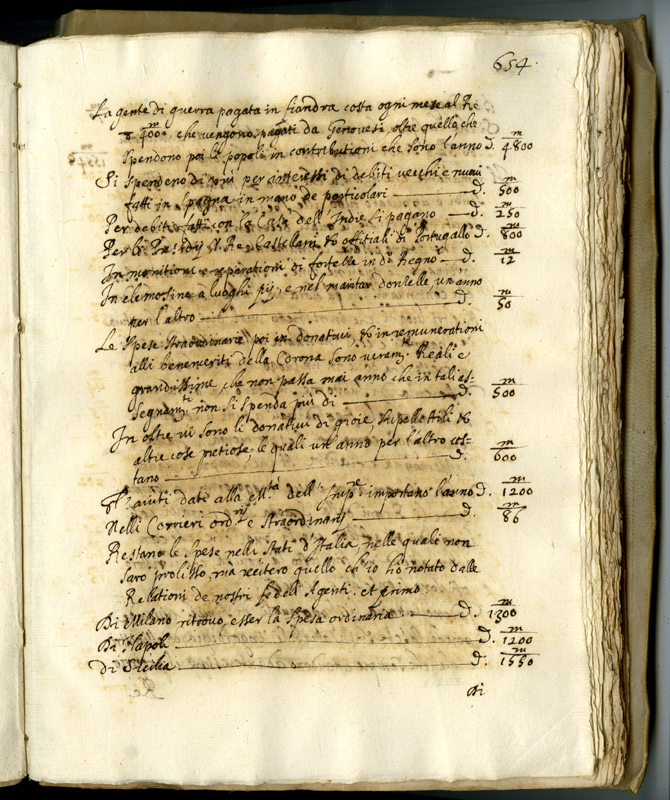 654.
La gente di guerra pagata in fiandra costa ogni mese al Re
400, che vengono pagati da Genovesi, oltre quello, che
spendono poi li popoli in contributioni che sono l'anno d. m 4800
Si spendeno di più per interessi di debiti vecchi e nuovi
fatti in Spagna in mano de particolari d. m 500
Per debiti fatti con la Casa dell'Indie si pagano d. m 250
Per li Presidij N. Re Castellani, & offitiali di Portugallo d. m 800
In monitioni e reparationi di fortezze in do Regno d. m 12
In elemosine a luoghi pij, e nel maritar donzelle un anno
per l'altro d. m 50
Le spese straordinarie poi in donativi, & in remunerationi
alli benemeriti della Corona sono veramte Reali e
grandissime, che non passa mai anno che in tali as=
segnamti non si spenda più di d. m 500
In oltre vi sono li donativi di gioie, supellettili &
altre cose pretiose, le quali un' anno per l'altro cos=
tano d. m 600
Gl'aiuti dati alla essta dell' Impre importano l'anno d. m 1200
Nelli Corrieri ordrij e straordinarij d. m 86
Restano le spese nelli stati d'Italia, nelle quali non
sarò prolisso, mà recitero quello ch'io hò notato dalle
Relationi de nostri fedeli Agenti. et primo
Di Milano ritrovo, esser la spesa ordinaria d. m 1300
Di Napoli d. m 1200
Di Sicilia d. m 1550
Di